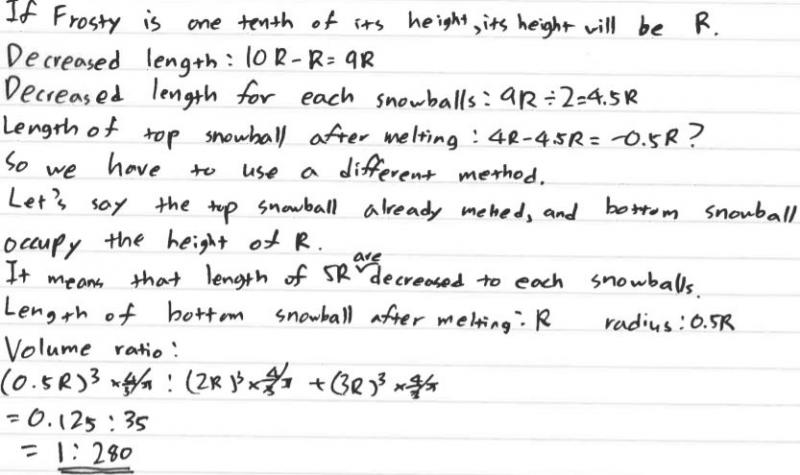 If Frosty is one tenth of its height, its height will be R.
Decreased length : 10R - R = 9R
Decreased length for each snowballs : 9R ÷ 2 = 4.5R
Length of top snowball after melting : 4R - 4.5R = -0.5R ?
So we have to use a different method.
Let's say the top snowball already melted, and bottom snowball
occupy the height of R.
It means that length of 5R are decreased to each snowballs.
Length of bottom snowball after melting : R radius : 0.5R
Volume ratio :
(0.5R)³ × 4/3 π : (2R)³ × 4/3 π + (3R)³ × 4/3 π
= 0.125 : 35
= 1 : 280